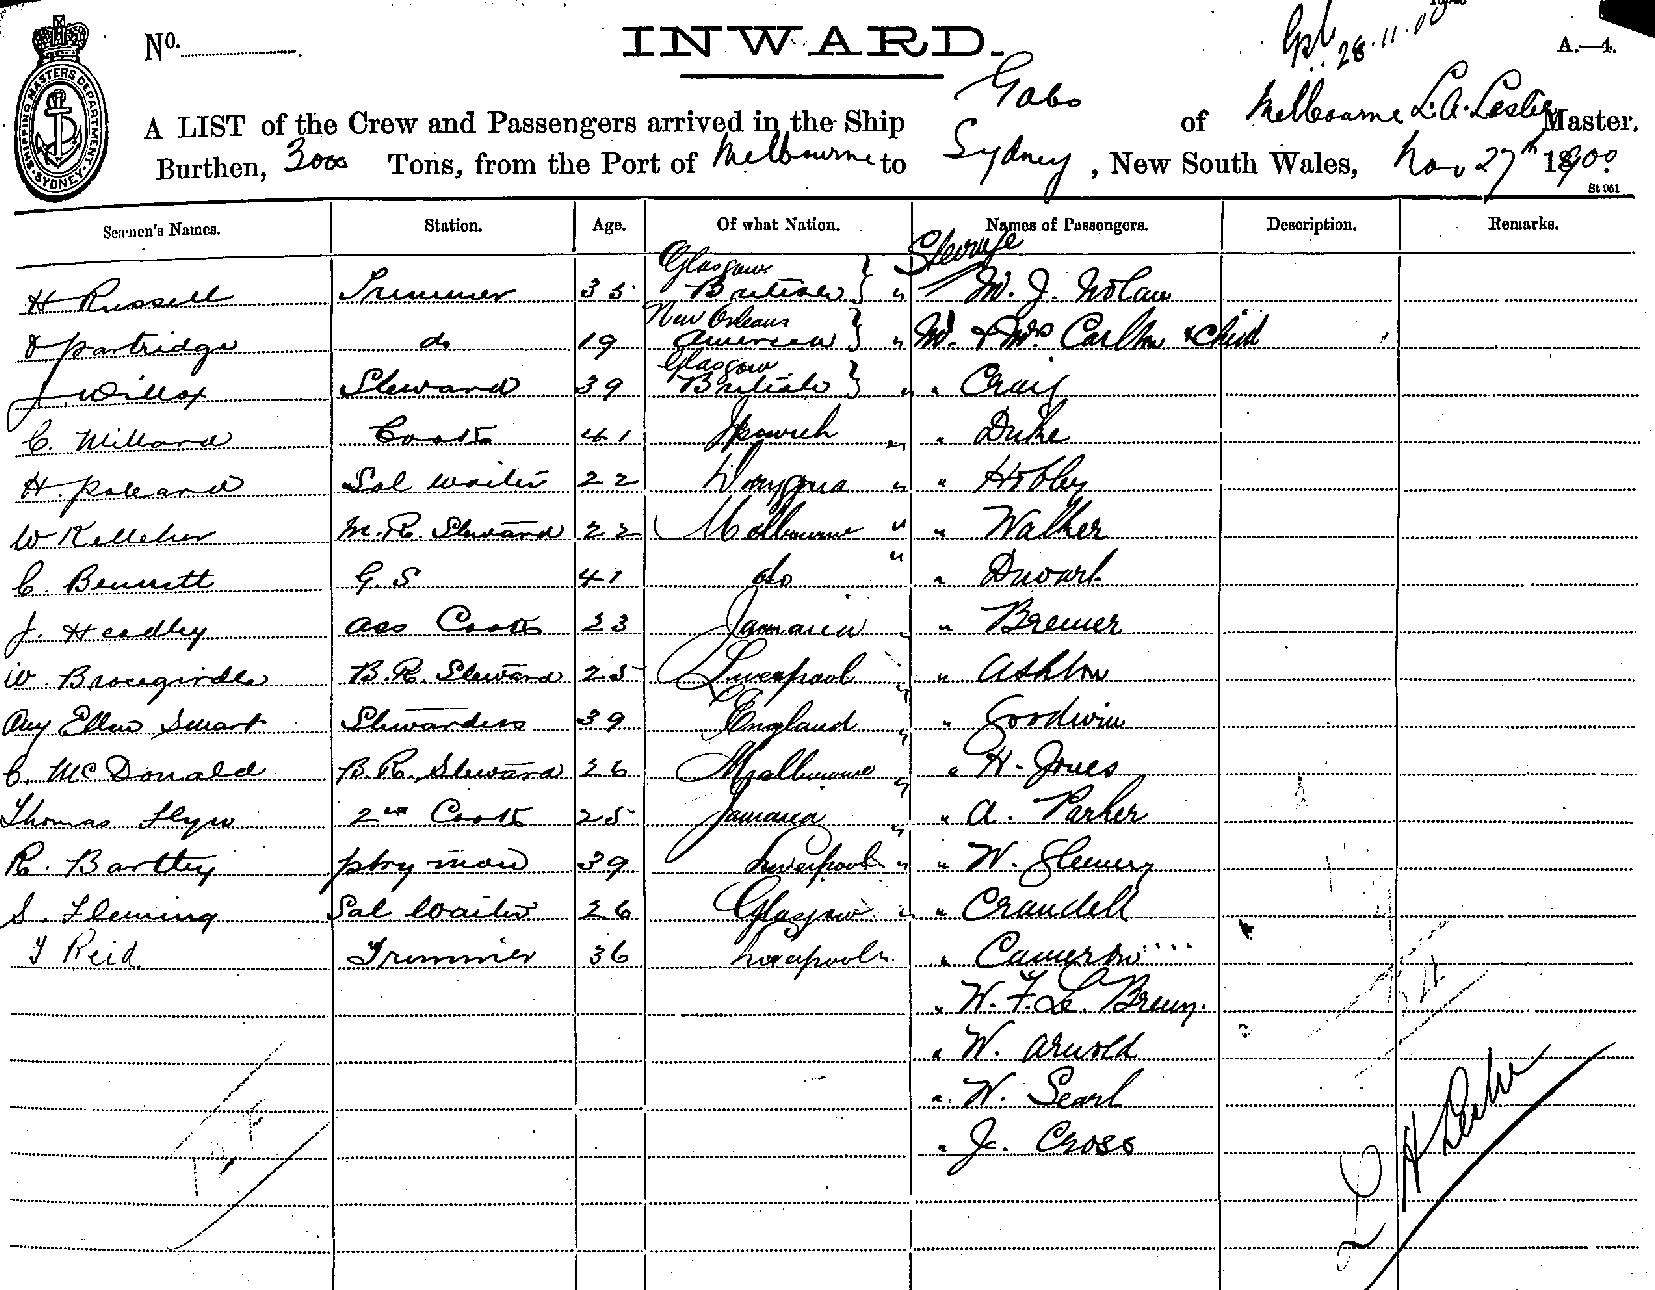 No.
INWARD.
28.11.00
A.—4.
SHIPPING MASTERS DEPARTMENT
SYDNEY
A LIST of the Crew and Passengers arrived in the Ship Gabo of Melbourne L. A. Leslie Master.
Burthen, 3000 Tons, from the Port of Melbourne to Sydney, New South Wales, Nov 27th 1900
St 961
Seamen's Names. Station. Age. Of what Nation. Names of Passengers. Description. Remarks.
Steerage
Glasgow
H Russell Trimmer 35 British } " M. J. Nolan
New Orleans
Partridge do 19 American } " Mr & Mrs Carlton & Child
Glasgow
J. Willox Steward 39 British } " " Craig
C. Millard Cook 41 Ipswich " " Duke
H. Poleand Sal waiter 22 " " Hobley
W Kelleher M.R. Steward 22 Melbourne " " Walker
C. Bennett G. S 41 do " " Duvart
J. Headley ass Cook 23 Jamaica " " Bremer
W. Bracegirdle B.R. Steward 25 Liverpool " " Ashton
Amy Ellen Smart Stewardess 39 England " " Goodwin
C. McDonald B.R. Steward 26 Melbourne " " H. Jones
Thomas Flynn 2nd Cook 25 Jamaica " " A. Parker
R. Bartley ptry man 39 Liverpool " " W. Flemery
S. Fleming Sal Waiter 26 Glasgow " " Crandell
T Reid Trimmer 36 Liverpool " Cameron
" W. F. Le Breun.
" W. Arnold
" W. Searl
" J. Cross